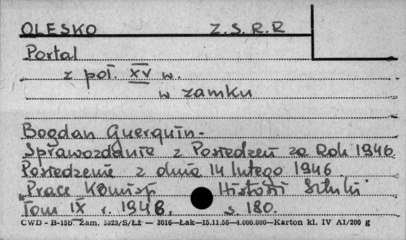 OLESKO Z.S.R.R
Portal
z poł. XV w.
w zamku
Bogdan Guerquin -
Sprawozdanie z Posiedzeń za Rok 1946
Posiedzenie z dnia 14 lutego 1946
Prace Komisji Historii Sztuki
Tom IX r. 1948. s 180.
CWD - B-15b Zam. 5823/S/Lż — 3016—Łak—15.11.56—4.000.000—Karton kl. IV A1/200 g